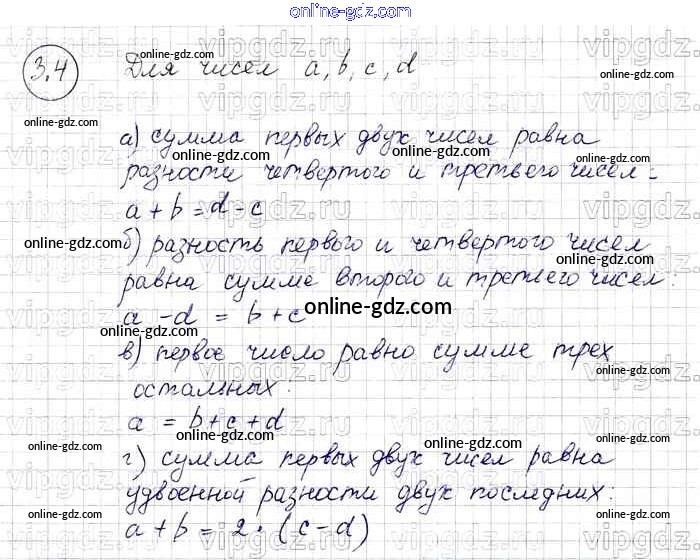 online-gdz.com
online-gdz.com
3.4 Для чисел a, b, c, d
а) сумма первых двух чисел равна
разности четвертого и третьего чисел -
a + b = d - c
б) разность первого и четвертого чисел
равна сумме второго и третьего чисел:
a - d = b + c
в) первое число равно сумме трех
остальных:
a = b + c + d
г) сумма первых двух чисел равна
удвоенной разности двух последних:
a + b = 2 · (c - d)